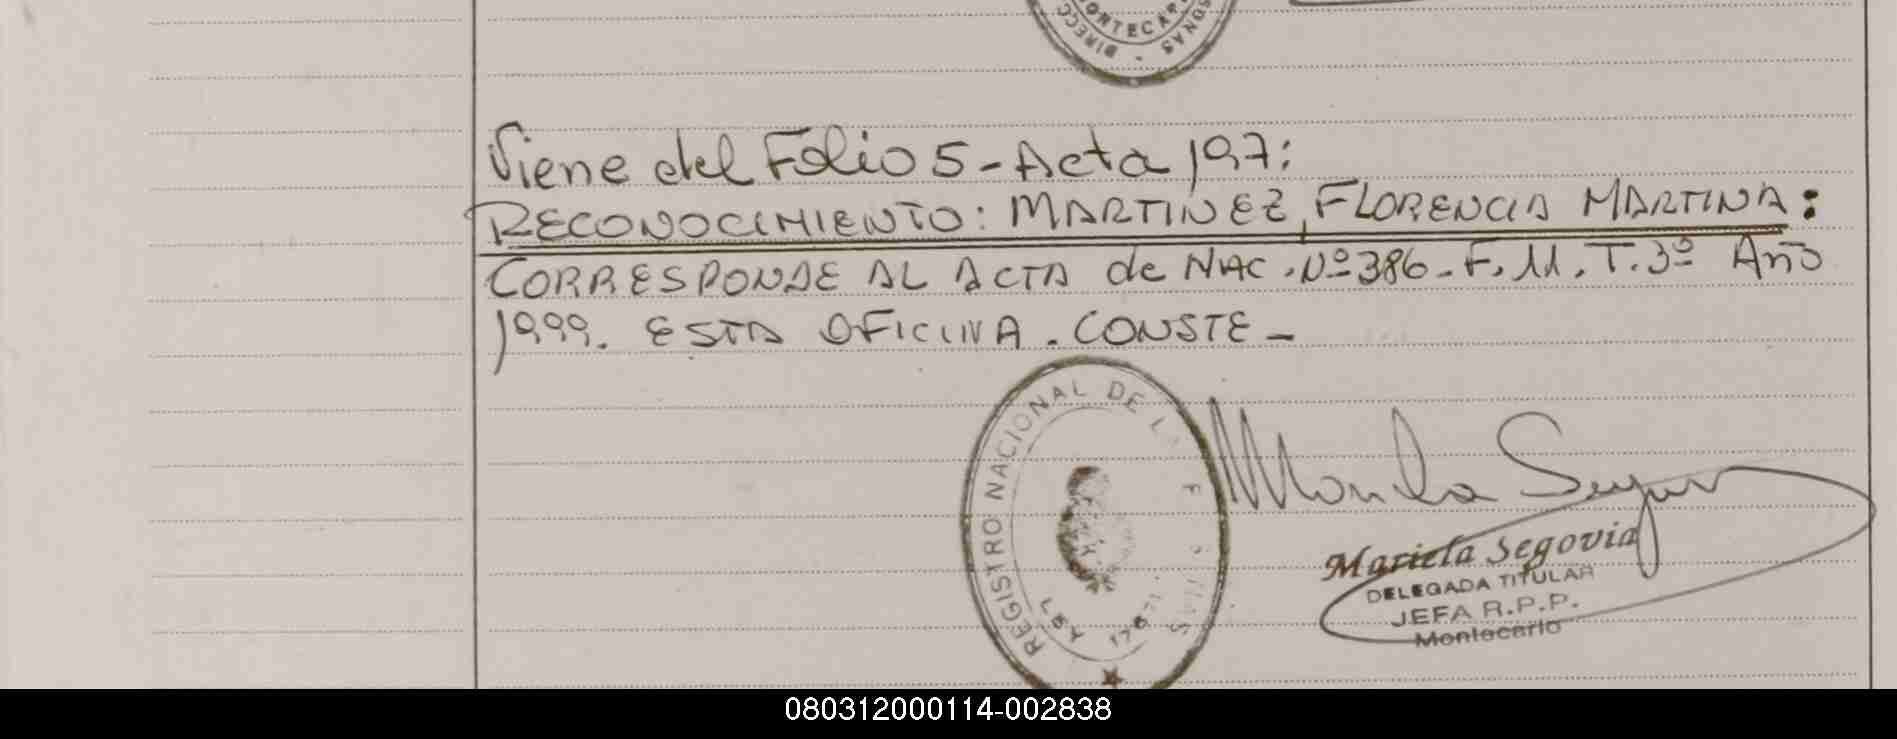 DIRECC
MONTECAR
SONAS
Viene del Folio 5 - Acta 197:
RECONOCIMIENTO: MARTINEZ, FLORENCIA MARTINA:
CORRESPONDE AL ACTA de NAC. Nº 386 - F. 11. T. 3º Año
1999. ESTA OFICINA. CONSTE -
REGISTRO NACIONAL DE LAS
LEY 17671
Mariela Segovia
Mariela Segovia
DELEGADA TITULAR
JEFA R.P.P.
Montecarlo
080312000114-002838